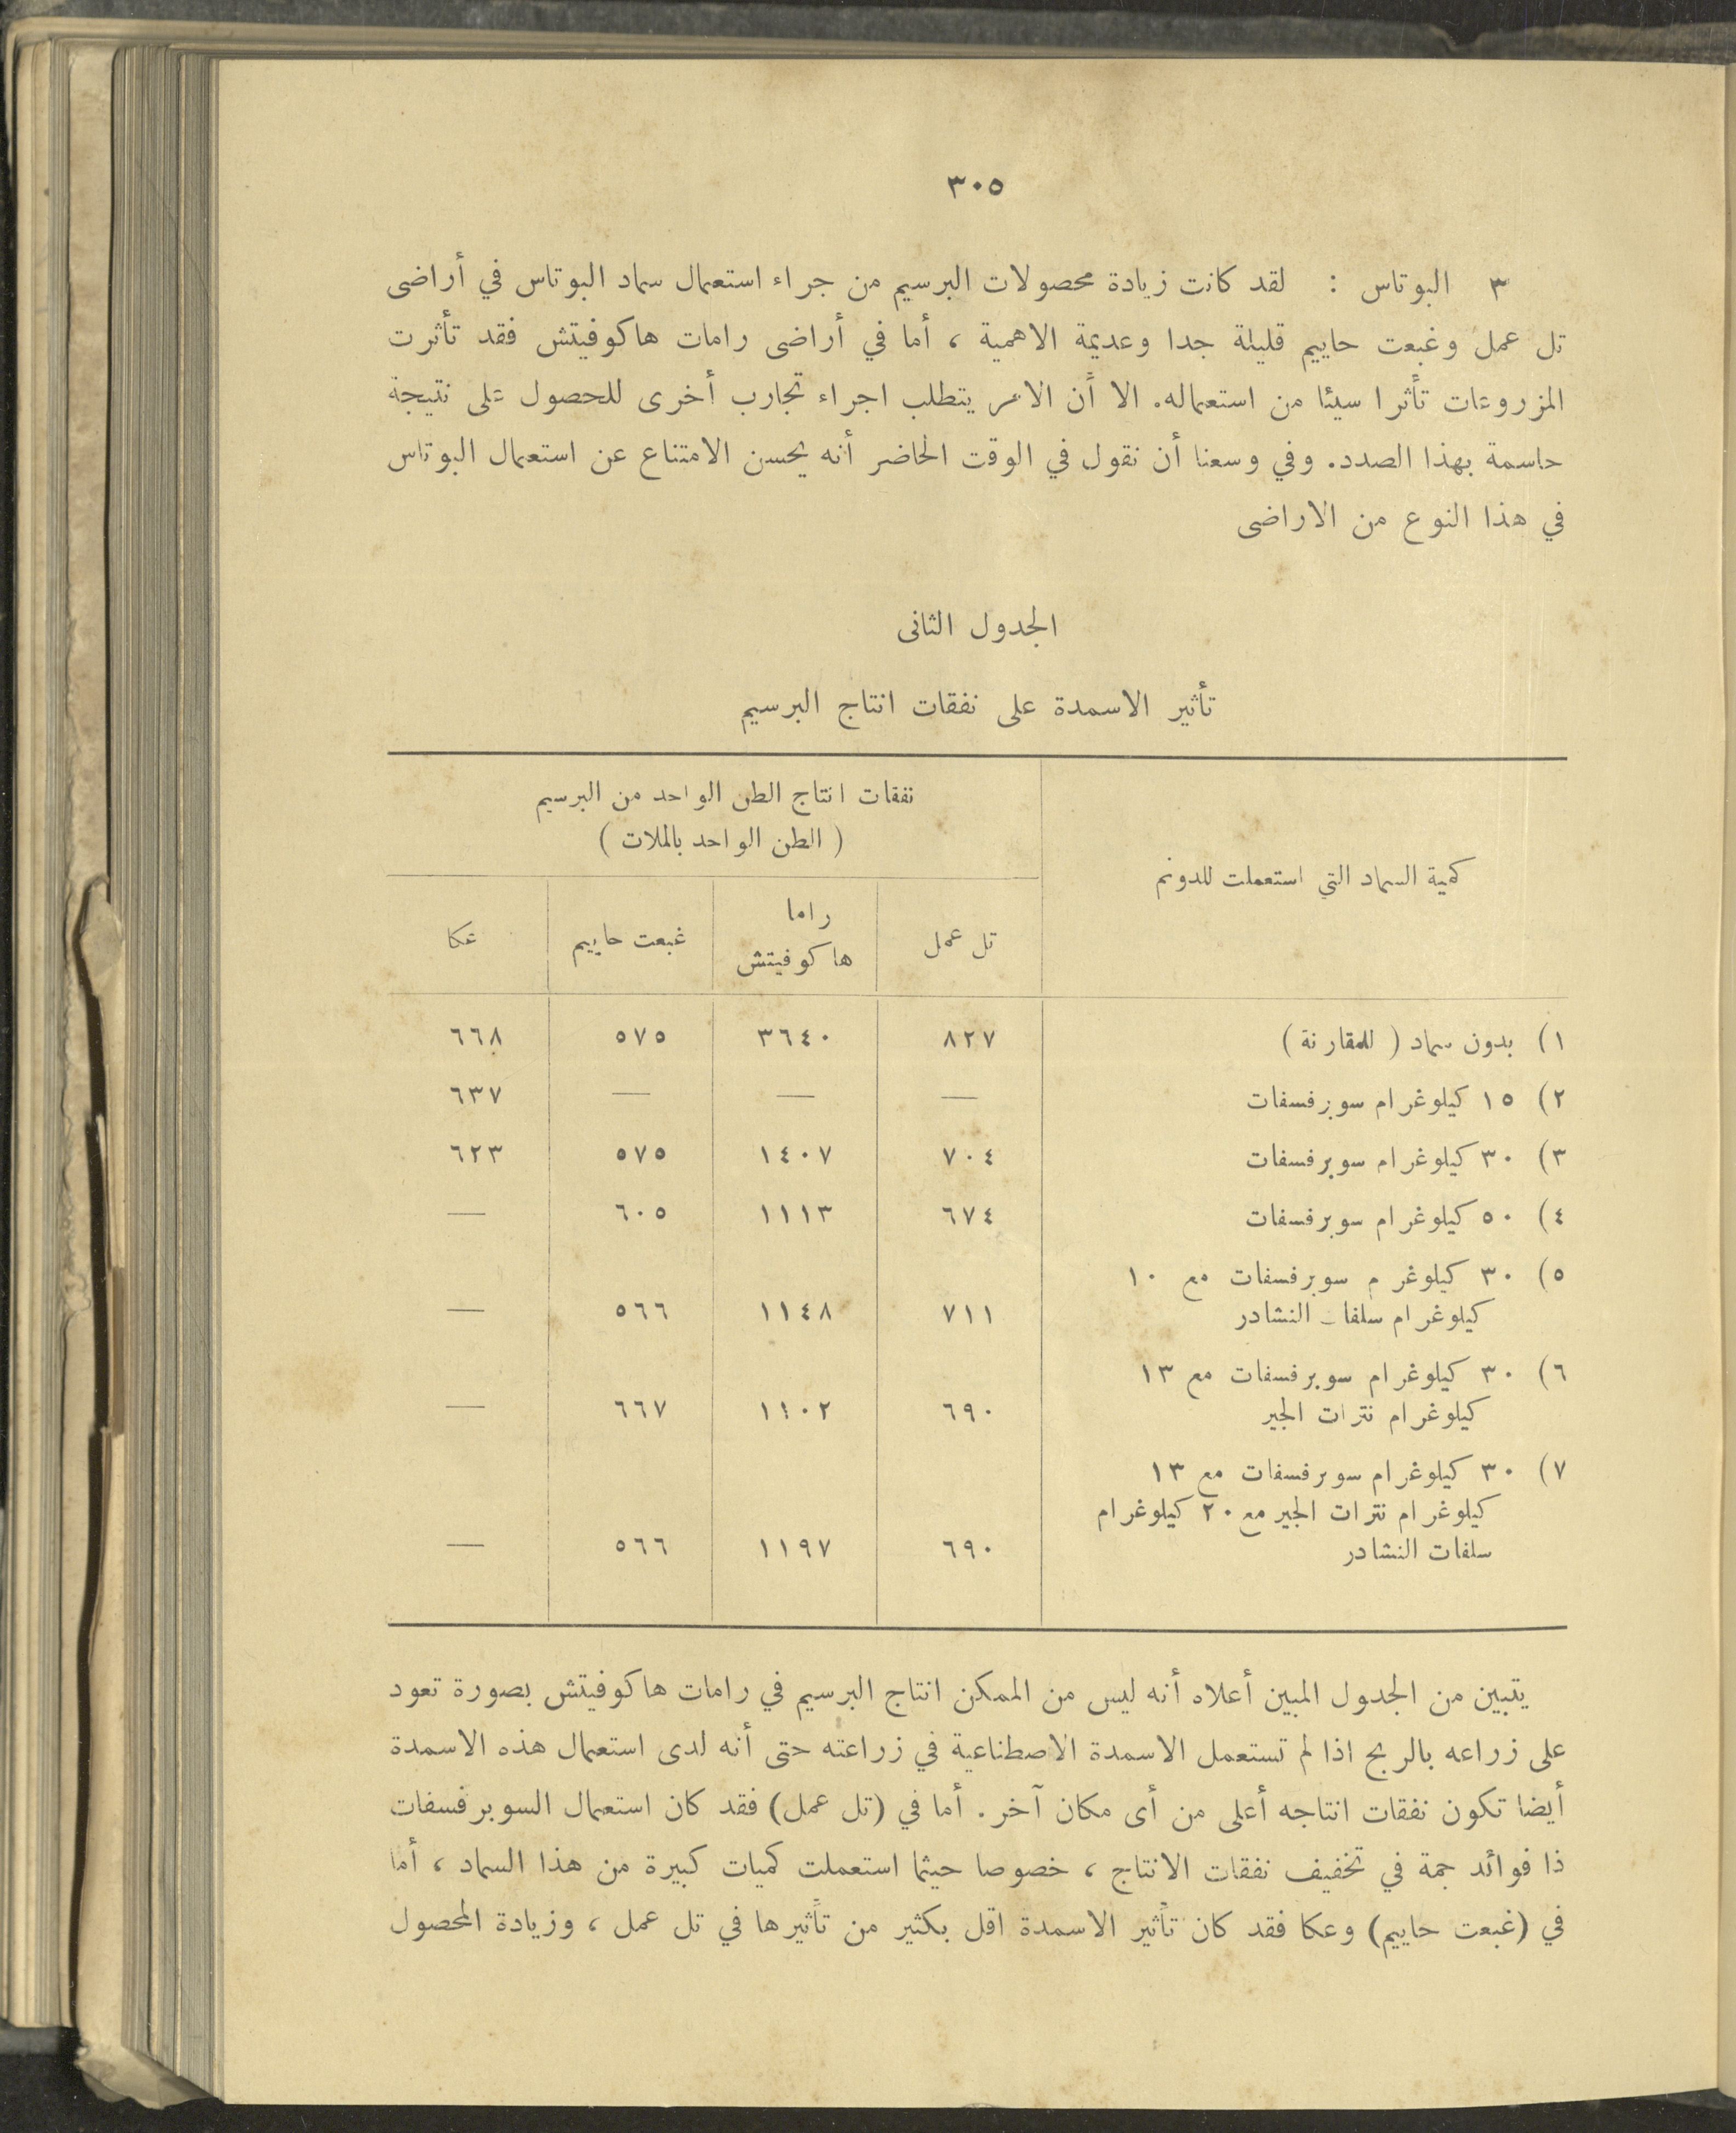 ٣٠٥
٣ البوتاس : لقد كانت زيادة محصولات البرسيم من جراء استعمال سماد البوتاس في أراضى
تل عمل وغبعت حاييم قليلة جدا وعديمة الاهمية ، أما في أراضى رامات هاكوفيتش فقد تأثرت
المزروعات تأثرا سيئا من استعماله. الا أن الامر يتطلب اجراء تجارب أخرى للحصول على نتيجة
حاسمة بهذا الصدد. وفي وسعنا أن نقول في الوقت الحاضر أنه يحسن الامتناع عن استعمال البوتاس
في هذا النوع من الاراضى
الجدول الثانى
تأثير الاسمدة على نفقات انتاج البرسيم
كمية السماد التي استعملت للدونم
نفقات انتاج الطن الواحد من البرسيم
( الطن الواحد بالملات )
تل عمل
راما
هاكوفيتش
غبعت حاييم
عكا
١) بدون سماد ( للمقارنة ) ٨٢٧ ٣٦٤٠ ٥٧٥ ٦٦٨
٢) ١٥ كيلوغرام سوبرفسفات — — — ٦٣٧
٣) ٣٠ كيلوغرام سوبرفسفات ٧٠٤ ١٤٠٧ ٥٧٥ ٦٢٣
٤) ٥٠ كيلوغرام سوبرفسفات ٦٧٤ ١١١٣ ٦٠٥ —
٥) ٣٠ كيلوغرام سوبرفسفات مع ١٠
كيلوغرام سلفات النشادر ٧١١ ١١٤٨ ٥٦٦ —
٦) ٣٠ كيلوغرام سوبرفسفات مع ١٣
كيلوغرام نترات الجير ٦٩٠ ٦٦٧ —
٧) ٣٠ كيلوغرام سوبرفسفات مع ١٣
كيلوغرام نترات الجير مع ٢٠ كيلوغرام
سلفات النشادر ٦٩٠ ١١٩٧ ٥٦٦ —
يتبين من الجدول المبين أعلاه أنه ليس من الممكن انتاج البرسيم في رامات هاكوفيتش بصورة تعود
على زراعه بالربح اذا لم تستعمل الاسمدة الاصطناعية في زراعته حتى أنه لدى استعمال هذه الاسمدة
أيضا تكون نفقات انتاجه أعلى من أى مكان آخر. أما في (تل عمل) فقد كان استعمال السوبرفسفات
ذا فوائد جمة في تخفيف نفقات الانتاج ، خصوصا حيثما استعملت كميات كبيرة من هذا السماد ، أما
في (غبعت حاييم) وعكا فقد كان تأثير الاسمدة اقل بكثير من تأثيرها في تل عمل ، وزيادة المحصول